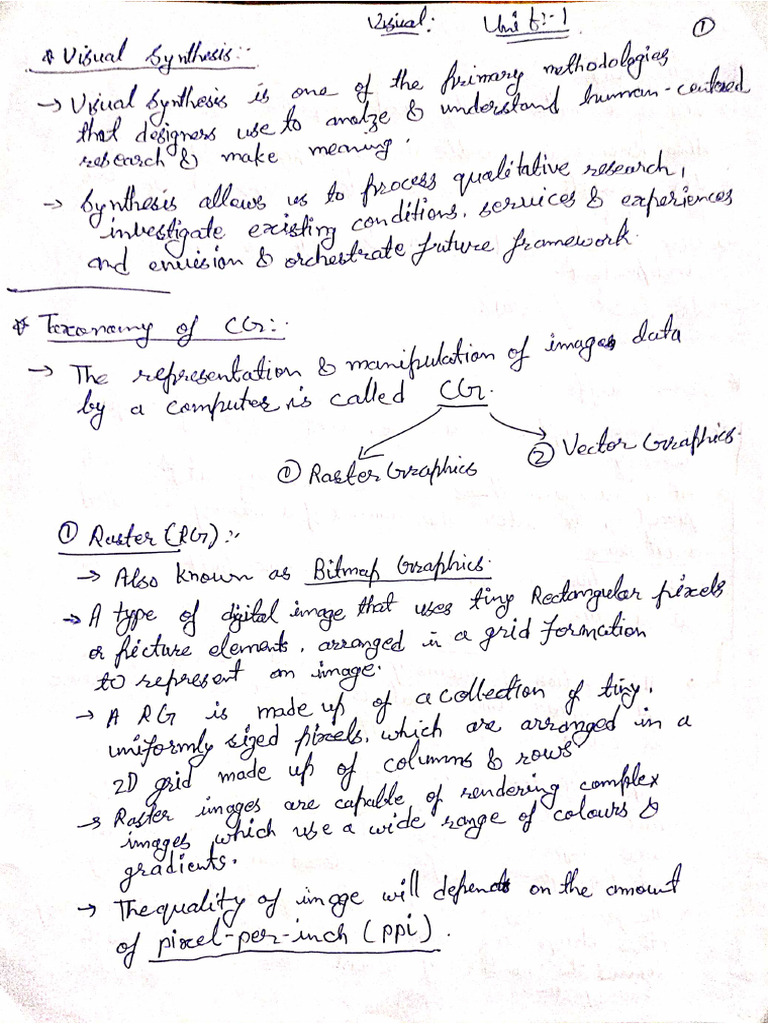 Visual: Unit:-1 ①
* Visual Synthesis:-
→ Visual Synthesis is one of the primary methodologies
that designers use to analze & understand human-centered
research & make meaning.
→ Synthesis allows us to process qualitative research,
investigate existing conditions, services & experiences
and envision & orchestrate future framework.
* Taxonomy of CG:-
→ The representation & manipulation of images data
by a computer is called CG.
① Raster Graphics
② Vector Graphics.
① Raster (RG):-
→ Also known as Bitmap Graphics.
→ A type of digital image that uses tiny Rectangular pixels
or picture elements, arranged in a grid formation
to represent an image.
→ A RG is made up of a collection of tiny,
uniformly sized pixels, which are arranged in a
2D grid made up of columns & rows
→ Raster images are capable of rendering complex
images which use a wide range of colours &
gradients.
→ The quality of image will depends on the amount
of pixel-per-inch (ppi).